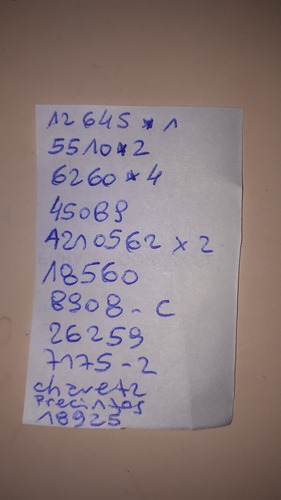 12645 * 1
5510 * 2
6260 * 4
45089
A210562 x 2
18560
8908 - C
26259
7175 - 2
chaveta
Precintos
18925